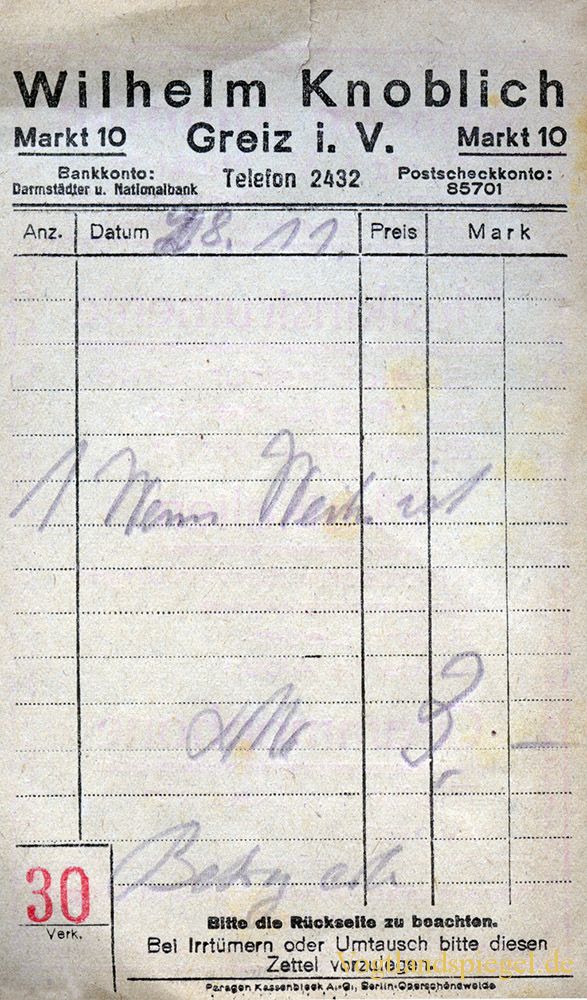 Wilhelm Knoblich
Markt 10 Greiz i. V. Markt 10
Bankkonto: Darmstädter u. Nationalbank Telefon 2432 Postscheckkonto: 85701
Anz. Datum 28. 11. Preis Mark
1 Wenn
3,—
30
Verk.
Bitte die Rückseite zu beachten.
Bei Irrtümern oder Umtausch bitte diesen
Zettel vorzulegen.
Vogtlandspiegel.de
Paragon Kassenblock A.-G., Berlin-Oberschöneweide